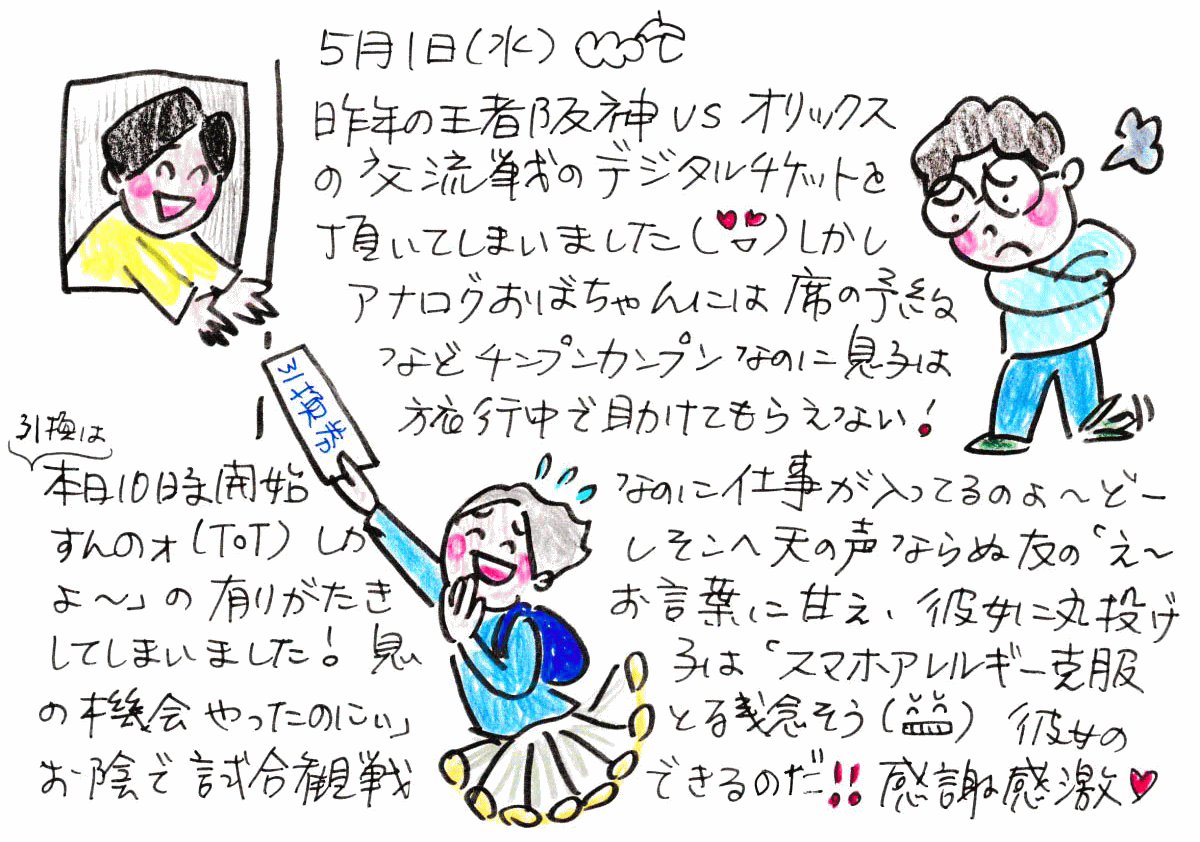 5月1日(水)
昨年の王者阪神 VS オリックス
の交流戦のデジタルチケットを
頂いてしまいました(♥♥)しかし
アナログおばちゃんには席の予約
などチンプンカンプンなのに息子は
旅行中で助けてもらえない!
引換券
引換は
本日10時開始 なのに仕事が入ってるのよ〜どー
すんのォ(ToT) しか しそこへ天の声ならぬ友の「え〜
よ〜」の有りがたき お言葉に甘え、彼女に丸投げ
してしまいました! 息 子は「スマホアレルギー克服
の機会やったのにぃ」 とる残念そう 彼女の
お陰で試合観戦 できるのだ!! 感謝感激♥